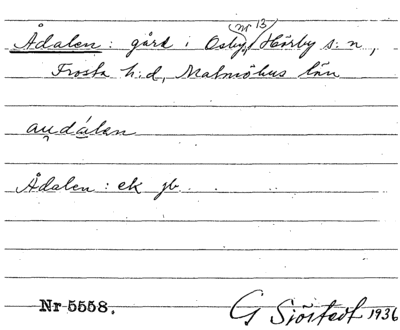 Ådalen: gård i Osby nr 13, Hörby s:n,
Frosta h:d, Malmöhus län
au̯dálan
Ådalen: ek jb
Nr 5558.
G Sjöstedt 1936